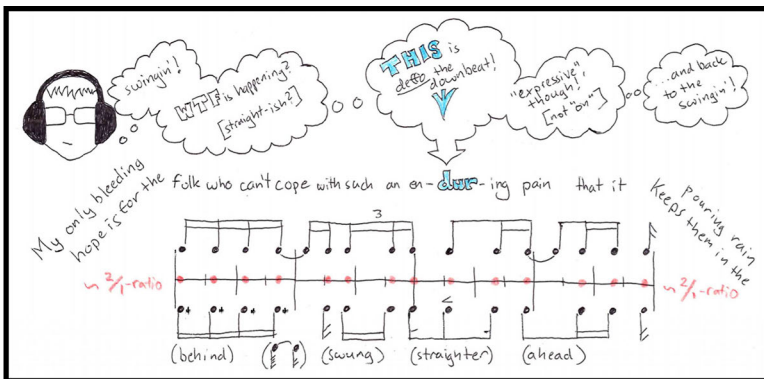 swingin'!
WTF is happening?
[straight-ish?]
THIS is
deffo the
downbeat!
"expressive",
though!
[not "on"]
...and back
to the
swingin'!
My only bleeding
hope is for the
folk who can't cope with such an en-dur-ing pain that it
keeps them in the
pouring rain
3
~ 2/1-ratio
~ 2/1-ratio
<
(behind)
(swung)
(straighter)
(ahead)